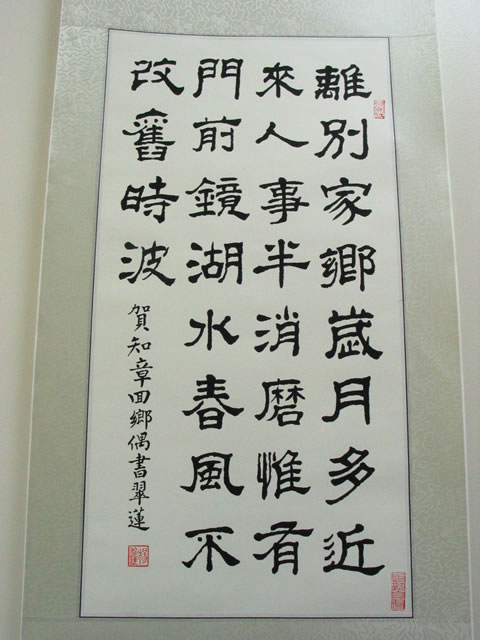 離別家鄉歲月多近
來人事半消磨惟有
門前鏡湖水春風不
改舊時波
賀知章回鄉偶書翠蓮